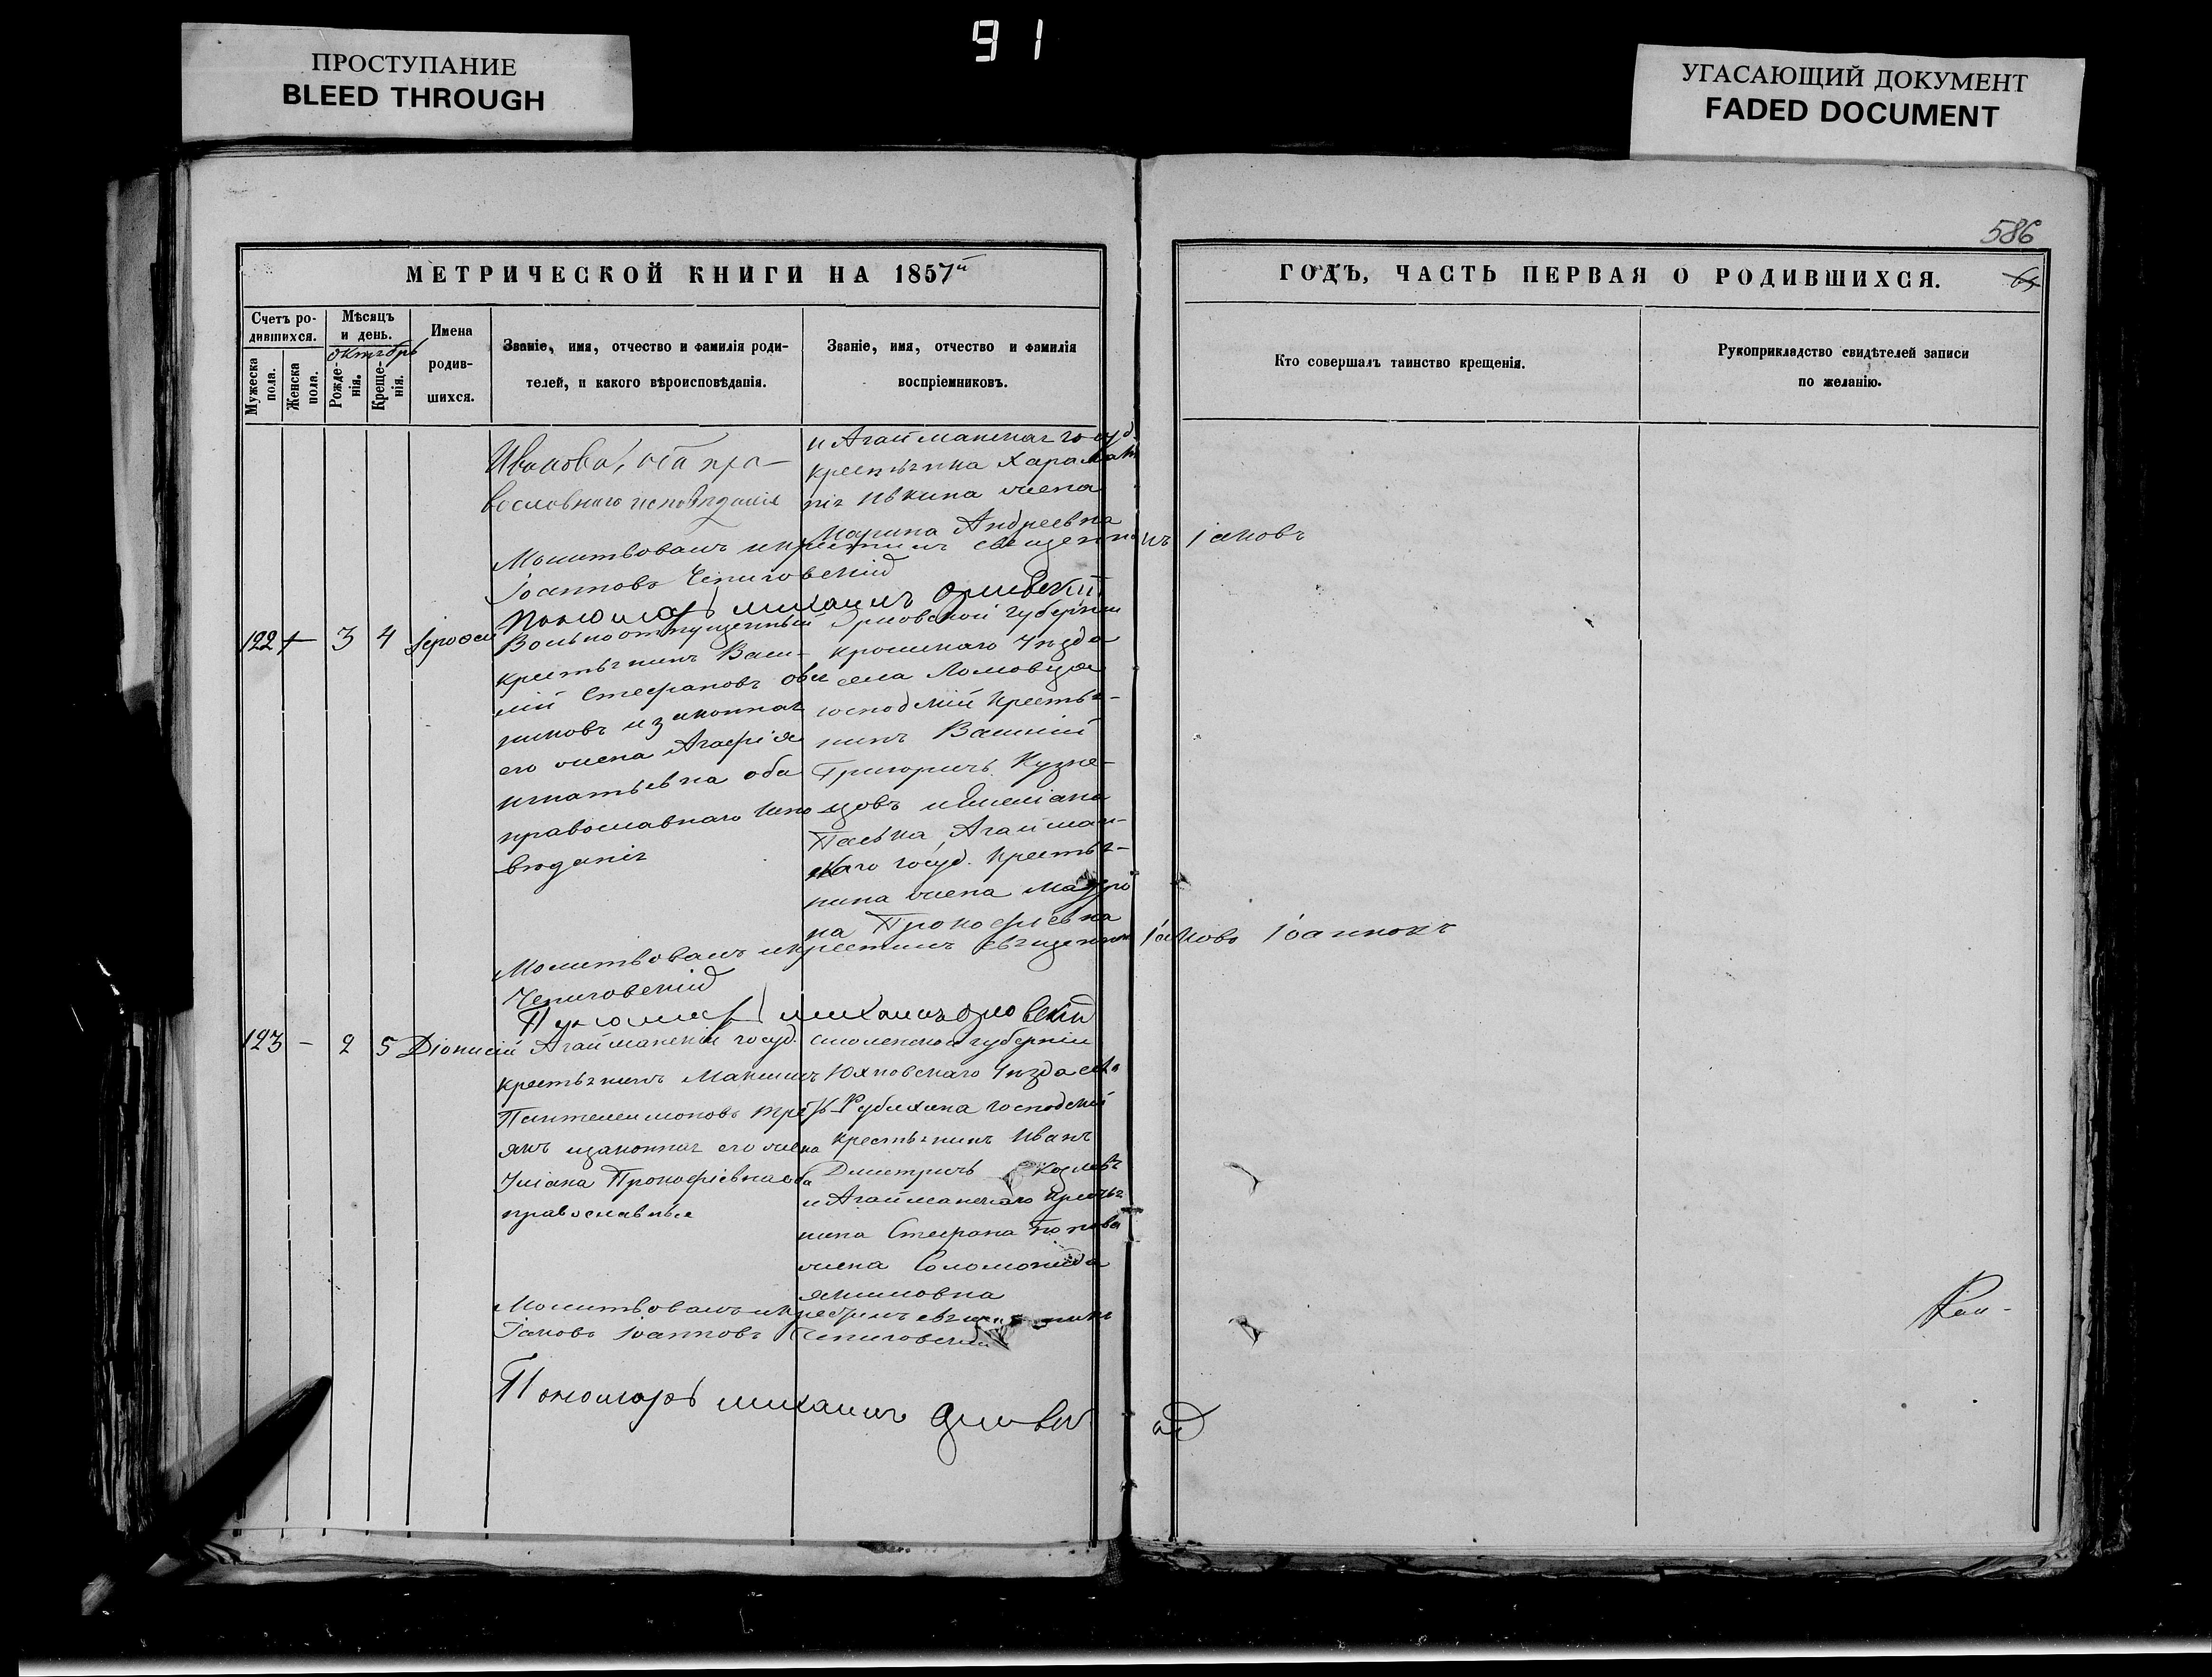 91
ПРОСТУПАНИЕ
BLEED THROUGH
УГАСАЮЩИЙ ДОКУМЕНТ
FADED DOCUMENT
586
МЕТРИЧЕСКОЙ КНИГИ НА 1857й
Счетъ ро-
дившихся.
Мужеска пола.
Женска пола.
Мѣсяцъ
и день.
октябрь
Рожде-
нія.
Креще-
нія.
Имена
родив-
шихся.
Званіе, имя, отчество и фамилія роди-
телей, и какого вѣроисповѣданія.
Званіе, имя, отчество и фамилія
воспріемниковъ.
ГОДЪ, ЧАСТЬ ПЕРВАЯ О РОДИВШИХСЯ.
Кто совершалъ таинство крещенія.
Рукоприкладство свидѣтелей записи
по желанію.
Иванова, оба пра-
вославнаго исповѣданія
и Агайманская госуд.
крестьянина Харалам
пія жена
Марина Андреевна
Молитвовалъ и крестилъ священникъ Іаковъ
Іоанновъ Чепиговскій
Пономарь михаилъ
122 3 4 Іероѳей
Вольноотпущенный
крестьянинъ Васи-
лій Стефановъ Овся
никовъ и законная
его жена Агафія
игнатьевна оба
православнаго испо
вѣданія
Орловской губерніи
кромскаго Уѣзда
села Ломовца
господскій кресть-
янинъ Василій
Григоричъ Кузне-
цовъ и Емеліана
Агайман-
скаго госуд. крестья-
нина жена Матро
на Прокофіевна
Молитвовалъ и крестилъ священникъ Іаковъ Іоанновъ
Чепиговскій
Пономарь михаилъ
123 – 2 5 Діонисій
Агайманскій госуд.
крестьянинъ Максимъ
Пантелеимоновъ
и законная его жена
Уліана Прокофіевна оба
православные
Смоленской губерніи
Юхновскаго Уѣзда села
Рублихина господскій
крестьянинъ Иванъ
Димитричъ Козловъ
и Агайманскаго крестья
нина Стефана Попова
жена Соломонида
якимовна
Молитвовалъ и крестилъ священникъ
Іаковъ Іоанновъ Чепиговскій
Пономарь михаилъ